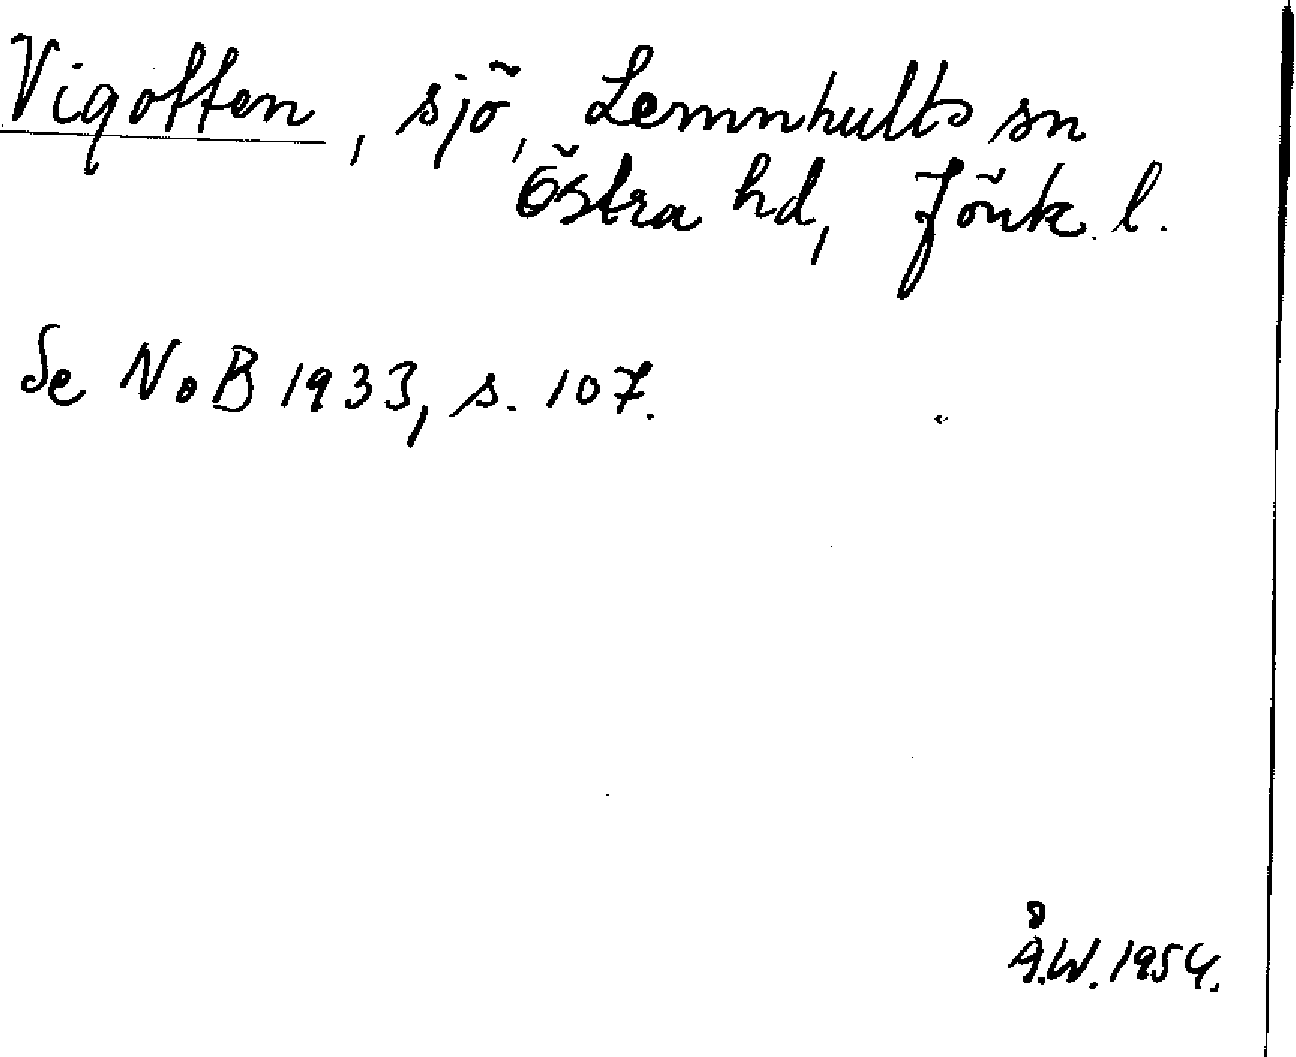 Vigotten, sjö, Lemnhults sn
Östra hd, Jönk. l.
Se NoB 1933, s. 107.
Å.W. 1954.